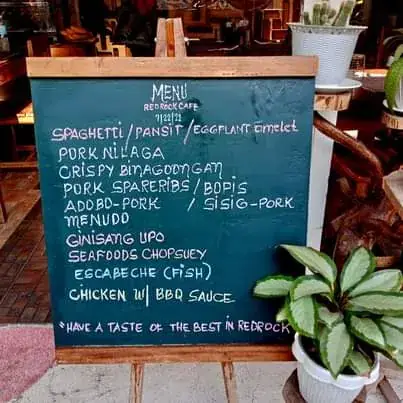 MENU
REDROCK CAFE
7/22/21
SPAGHETTI / PANSIT / EGGPLANT OMELET
PORK NILAGA
CRISPY BINAGOONGAN
PORK SPARERIBS / BOPIS
ADOBO-PORK / SISIG-PORK
MENUDO
GINISANG UPO
SEAFOODS CHOPSUEY
ESCABECHE (FISH)
CHICKEN W/ BBQ SAUCE
"HAVE A TASTE OF THE BEST IN REDROCK